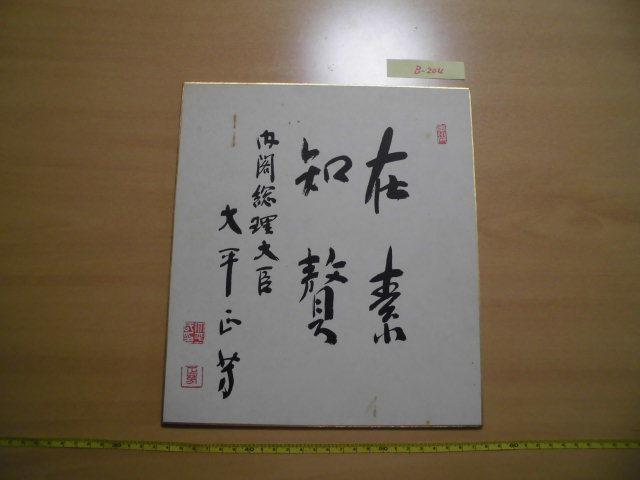 B-204
在素
知贅
内閣総理大臣
大平正芳